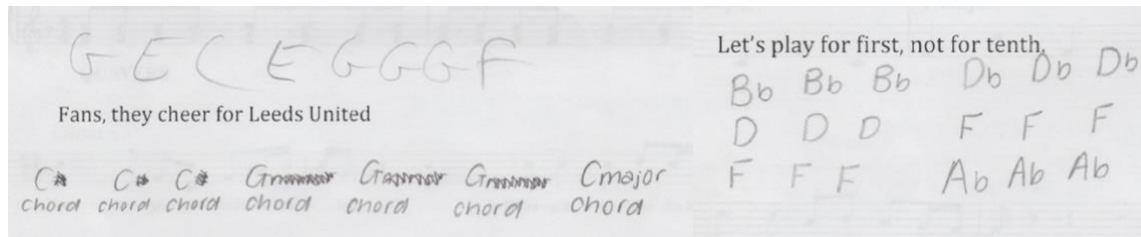 G E C E G G G F
Fans, they cheer for Leeds United
C C C G G G Cmajor
chord chord chord chord chord chord chord
Let's play for first, not for tenth,
Bb Bb Bb Db Db Db
D D D F F F
F F F Ab Ab Ab